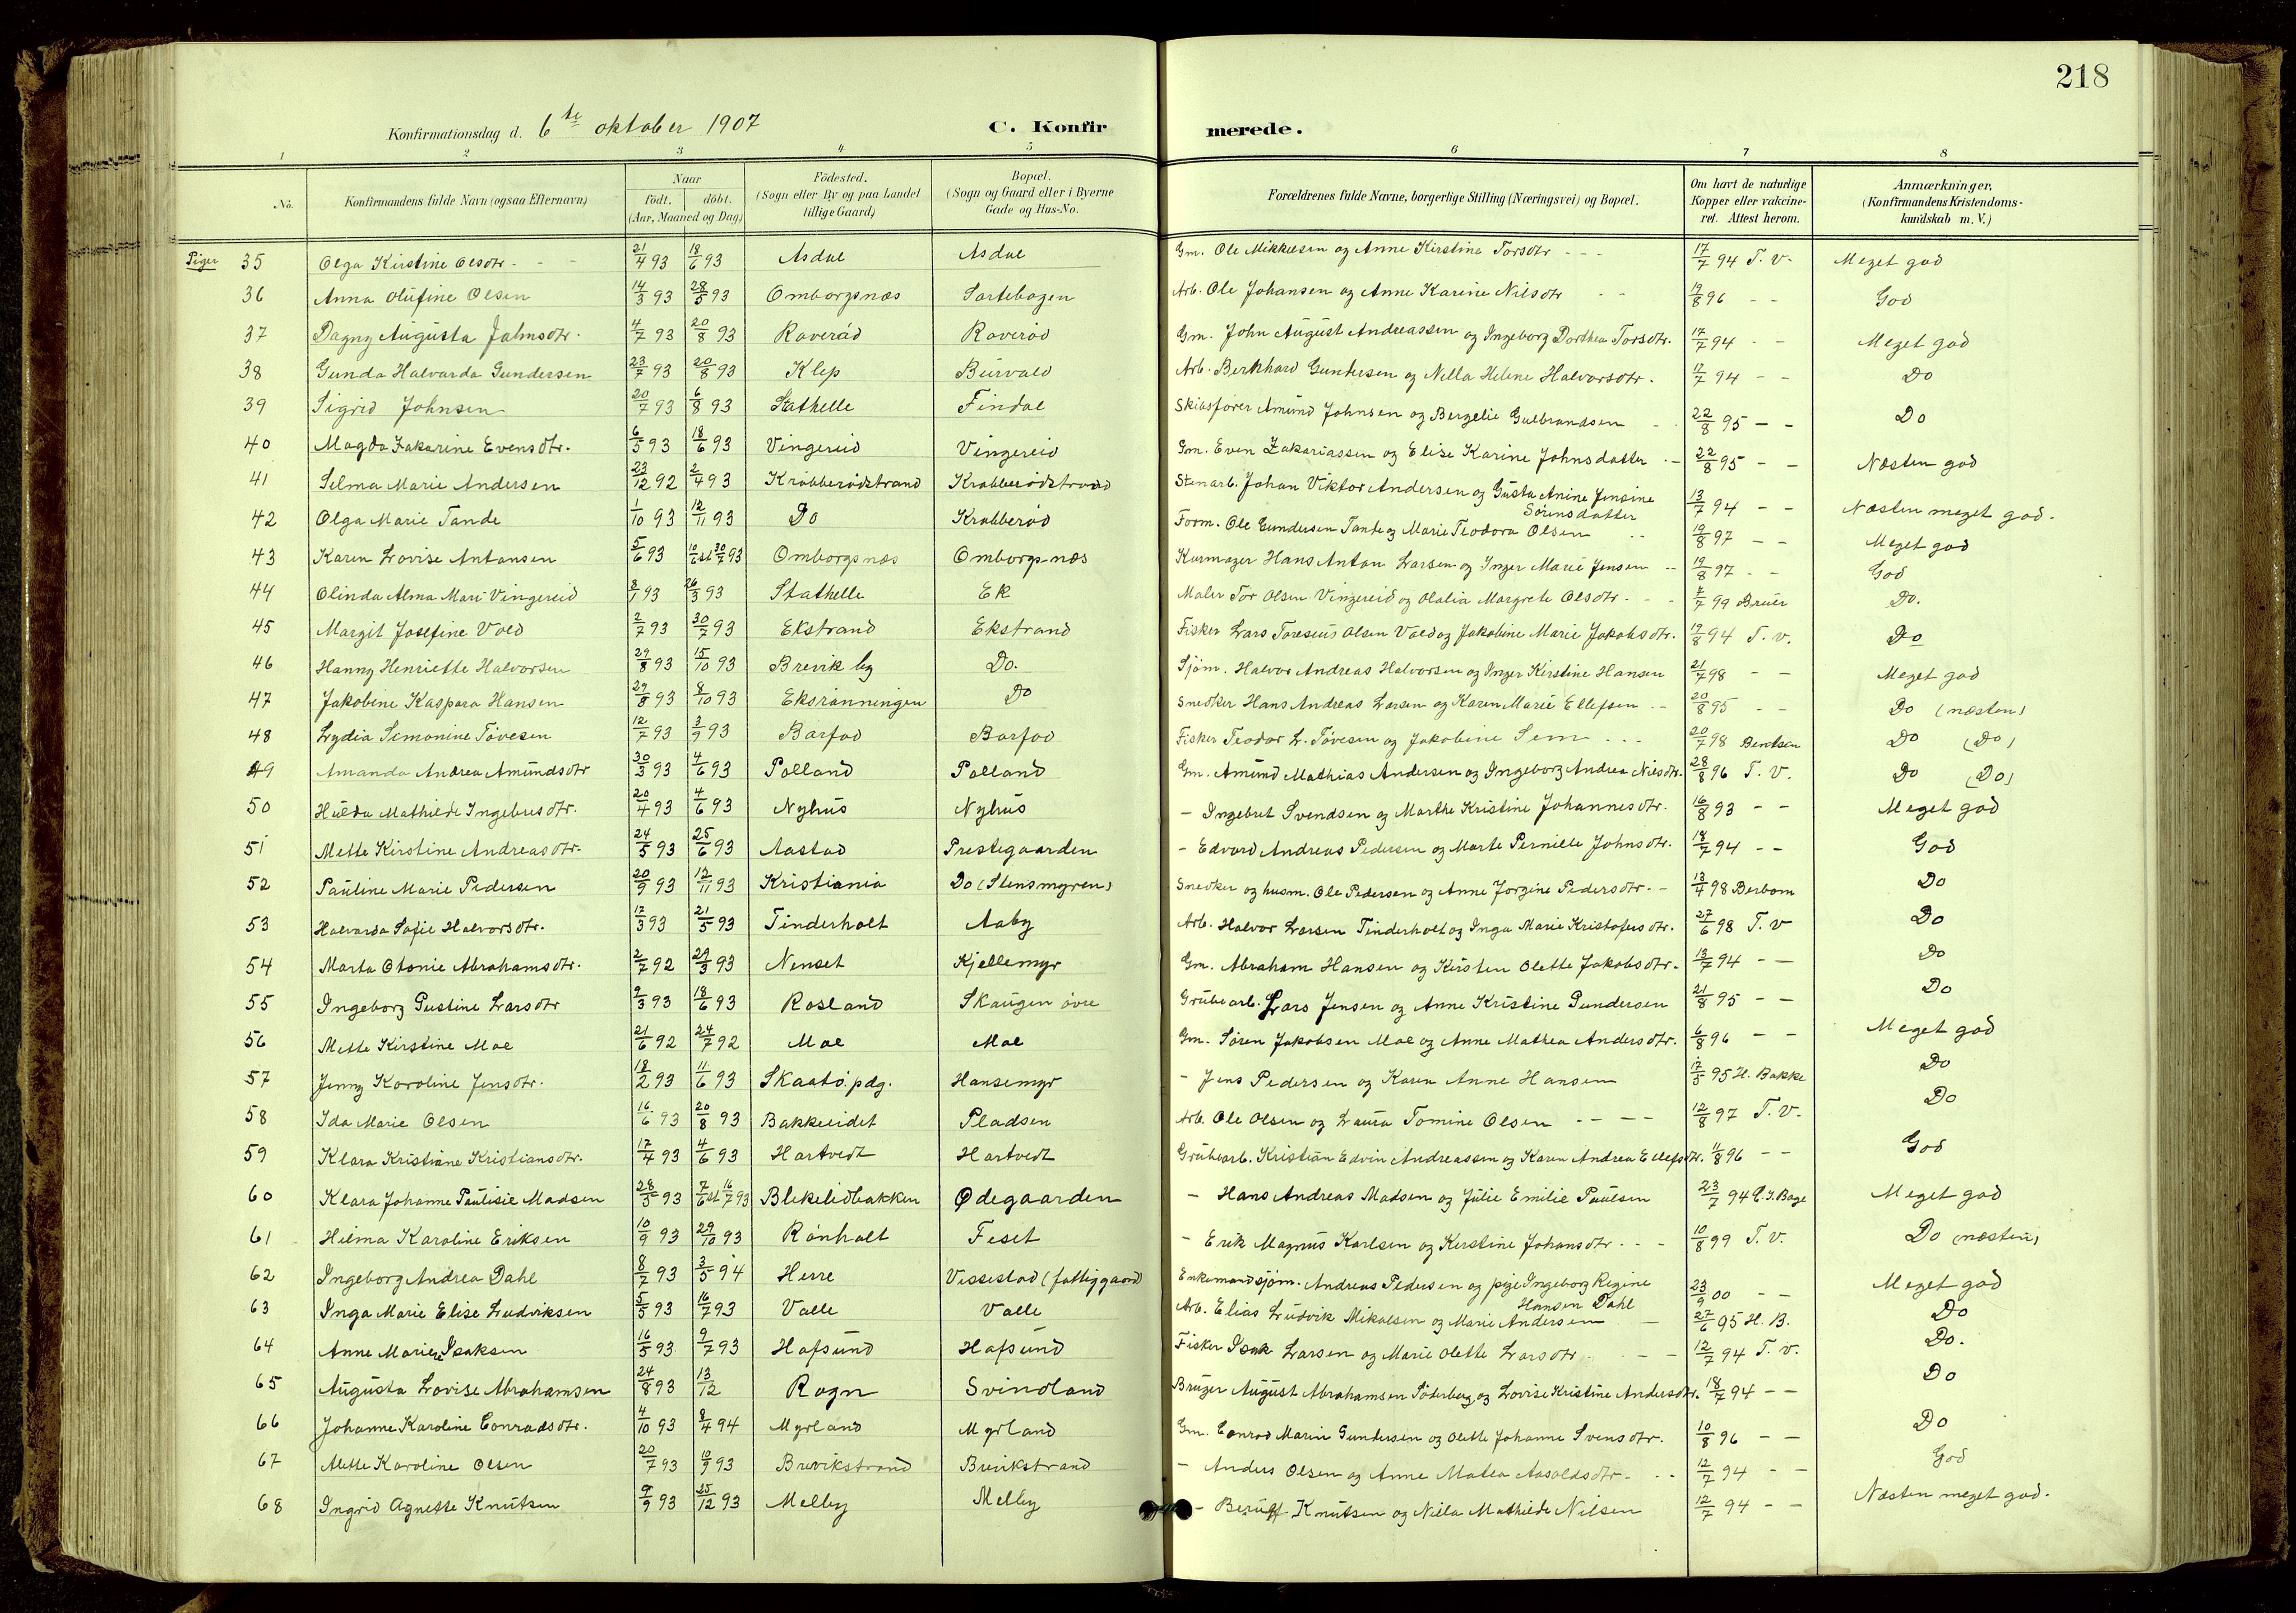 218
Konfirmationsdag d. 6te oktober 1907 C. Konfirmerede.
1 2 3 4 5 6 7 8
No. Konfirmandens fulde Navn (ogsaa Efternavn) Naar født, døbt. (Aar, Maaned og Dag) Födested. (Sogn eller By og paa Landet tillige Gaard) Bopæl. (Sogn og Gaard eller i Byerne Gade og Hus-No. Forældrenes fulde Navne, borgerlige Stilling (Næringsvei) og Bopæl. Om havt de naturlige Kopper eller vakcineret. Attest herom. Anmærkninger. (Konfirmandens Kristendomskundskab m. V.)
Piger 35 Olga Kirstine Olsdtr. 21/4 93 18/6 93 Asdal Asdal Gm. Ole Mikkelsen og Anne Kirstine Torsdtr 17/7 94 T. V. Meget god
36 Anna Olufine Olsen 14/3 93 28/5 93 Omborgsnæs Sartebogen Arb. Ole Johansen og Anne Karine Nilsdtr 19/8 96 - - God
37 Dagny Augusta Johnsdtr. 4/7 93 20/8 93 Raverød Raverød Gm. John August Andreassen og Ingeborg Dorthea Torsdtr. 17/7 94 - - Meget god
38 Gunda Halvarda Gundersen 23/7 93 20/8 93 Klep Burvald Arb. Berkhard Gundersen og Nella Helene Halvorsdtr. 17/7 94 - - Do
39 Sigrid Johnsen 20/7 93 6/8 93 Stathelle Findal Skibsfører Amund Johnsen og Bergelie Gulbrandsen 22/8 95 - - Do
40 Magda Zakarine Evensdtr. 6/5 93 18/6 93 Vingereid Vingereid Gm. Even Zakariassen og Elise Karine Johnsdatter 22/8 95 - - Næsten god
41 Selma Marie Andersen 23/12 92 2/4 93 Krabberødstrand Krabberødstrand Stenarb. Johan Viktor Andersen og Gusta Anine Jensine Sørensdatter 13/7 94 - - Næsten meget god.
42 Olga Marie Tande 1/10 93 12/11 93 Do Krabberød Form. Ole Gundersen Tande og Marie Teodora Olsen 19/8 97 - - Meget god
43 Karen Lovise Antonsen 5/6 93 10/6 st 30/7 93 Omborgsnæs Omborgsnæs Kurmager Hans Anton Larsen og Inger Marie Jensen 19/8 97 - - God
44 Olinda Alma Mari Vingereid 8/1 93 26/3 93 Stathelle Ek Maler Tor Olsen Vingereid og Olalia Margrete Olsdtr. 4/7 99 Breier Do.
45 Margit Josefine Vold 2/7 93 30/7 93 Ekstrand Ekstrand Fisker Lars Toresius Olsen Vold og Jakobine Marie Jakobsdtr. 19/8 94 T. V. Do
46 Hanny Henriette Halvorsen 29/8 93 15/10 93 Brevik by Do. Sjøm. Halvor Andreas Halvorsen og Inger Kirstine Hansen 21/7 98 - - Meget god
47 Jakobine Kaspara Hansen 29/8 93 8/10 93 Eksrønningen Do Snedker Hans Andreas Larsen og Karen Marie Ellefsen 20/8 95 - - Do (næsten)
48 Lydia Simonine Tövesen 12/7 93 3/9 93 Barfod Barfod Fisker Teodor L. Tövesen og Jakobine Sem 20/7 98 Bentsen Do (Do)
49 Amanda Andrea Amundsdtr 30/3 93 4/6 93 Polland Polland Gm. Amund Mathias Andersen og Ingeborg Andrea Nilsdtr. 28/8 96 T. V. Do (Do)
50 Hulda Mathilde Ingebrsdtr. 20/4 93 4/6 93 Nyhus Nyhus - Ingebret Svendsen og Marthe Kristine Johannesdtr. 16/8 93 - - Meget god
51 Mette Kirstine Andreasdtr. 24/5 93 25/6 93 Aastad Prestegaarden - Edvard Andreas Pedersen og Marte Pernille Johnsdtr. 18/7 94 - - God
52 Pauline Marie Pedersen 20/9 93 12/11 93 Kristiania Do (Stensmyren) Snedker og husm. Ole Pedersen og Anne Jorgine Pedersdtr. 13/4 98 Berbom Do
53 Halvarda Sofie Halvorsdtr. 17/3 93 21/5 93 Tinderholt Aaby Arb. Halvor Larsen Tinderholt og Inga Marie Kristofersdtr. 27/6 98 T. V Do
54 Marta Otonie Abrahamsdtr. 2/7 92 29/3 93 Nenset Kjellemyr Gm. Abraham Hansen og Kirsten Olette Jakobsdtr. 13/7 94 - - Do
55 Ingeborg Gustine Larsdtr 9/3 93 18/6 93 Rosland Skaugen øvre Grubearb. Lars Jensen og Anne Kristine Gundersen 21/8 95 - - Do
56 Mette Kirstine Moe 21/6 92 24/7 92 Moe Moe Gm. Søren Jakobsen Moe og Anne Mathea Andersdtr. 6/8 96 - - Meget god
57 Jenny Karoline Jensdtr. 18/2 93 11/6 93 Skaatö. pdg. Hansemyr - Jens Pedersen og Karen Anne Hansen 17/5 95 H. Bakke Do
58 Ida Marie Olsen 16/6 93 20/8 93 Bakkeeidet Pladsen Arb. Ole Olsen og Laura Tomine Olsen 12/8 97 T. V. Do
59 Klara Kristiane Kristiansdtr. 17/4 93 4/6 93 Hartvedt Hartvedt Grubearb. Kristian Edvin Andreassen og Karen Andrea Ellefsdtr. 11/8 96 - - God
60 Klara Johanne Paulisie Madsen 28/5 93 7/6 st 16/7 93 Blekelidbakken Ødegaarden - Hans Andreas Madsen og Julie Emilie Paulsen 23/7 94 Meget god
61 Hilma Karoline Eriksen 10/9 93 29/10 93 Rønholt Feset - Erik Magnus Karlsen og Kirstine Johansdtr. 10/8 99 T. V. Do (næsten)
62 Ingeborg Andrea Dahl 8/7 93 3/5 94 Herre Vissestad (fattiggaard) Enkemand sjøm. Andreas Pedersen og pige Ingeborg Regine Hansen Dahl 23/9 00 - - Meget god
63 Inga Marie Elise Ludviksen 5/5 93 16/7 93 Valle Valle Arb. Elias Ludvik Mikalsen og Marie Andersen 27/6 95 H. B. Do
64 Anne Marie Isaksen 16/5 93 9/7 93 Hafsund Hafsund Fisker Isak Larsen og Marie Olette Larsdtr. 12/7 94 T. V. Do.
65 Augusta Lovise Abrahamsen 24/8 93 13/12 Rogn Svindland Bruger August Abrahamsen Söderberg og Lovise Kristine Andersdtr. 18/7 94 - - Do
66 Johanne Karoline Conradsdtr. 4/10 93 8/4 94 Myrland Myrland Gm. Conrad Marin Gundersen og Olette Johanne Svensdtr. 10/8 96 - - Do
67 Alette Karoline Olsen 20/7 93 10/9 93 Brevikstrand Brevikstrand - Anders Olsen og Anne Matea Aasoldsdtr. 12/7 94 - - God
68 Ingrid Agnette Knutsen 9/9 93 25/12 93 Melby Melby - Knutsen og Nilla Mathilde Nilsen 12/7 94 - - Næsten meget god.